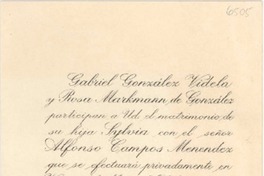 6505
Gabriel González Videla
y Rosa Markmann de González
participan a Ud. el matrimonio de
su hija Sylvia con el señor
Alfonso Campos Menendez
que se efectuará privadamente en